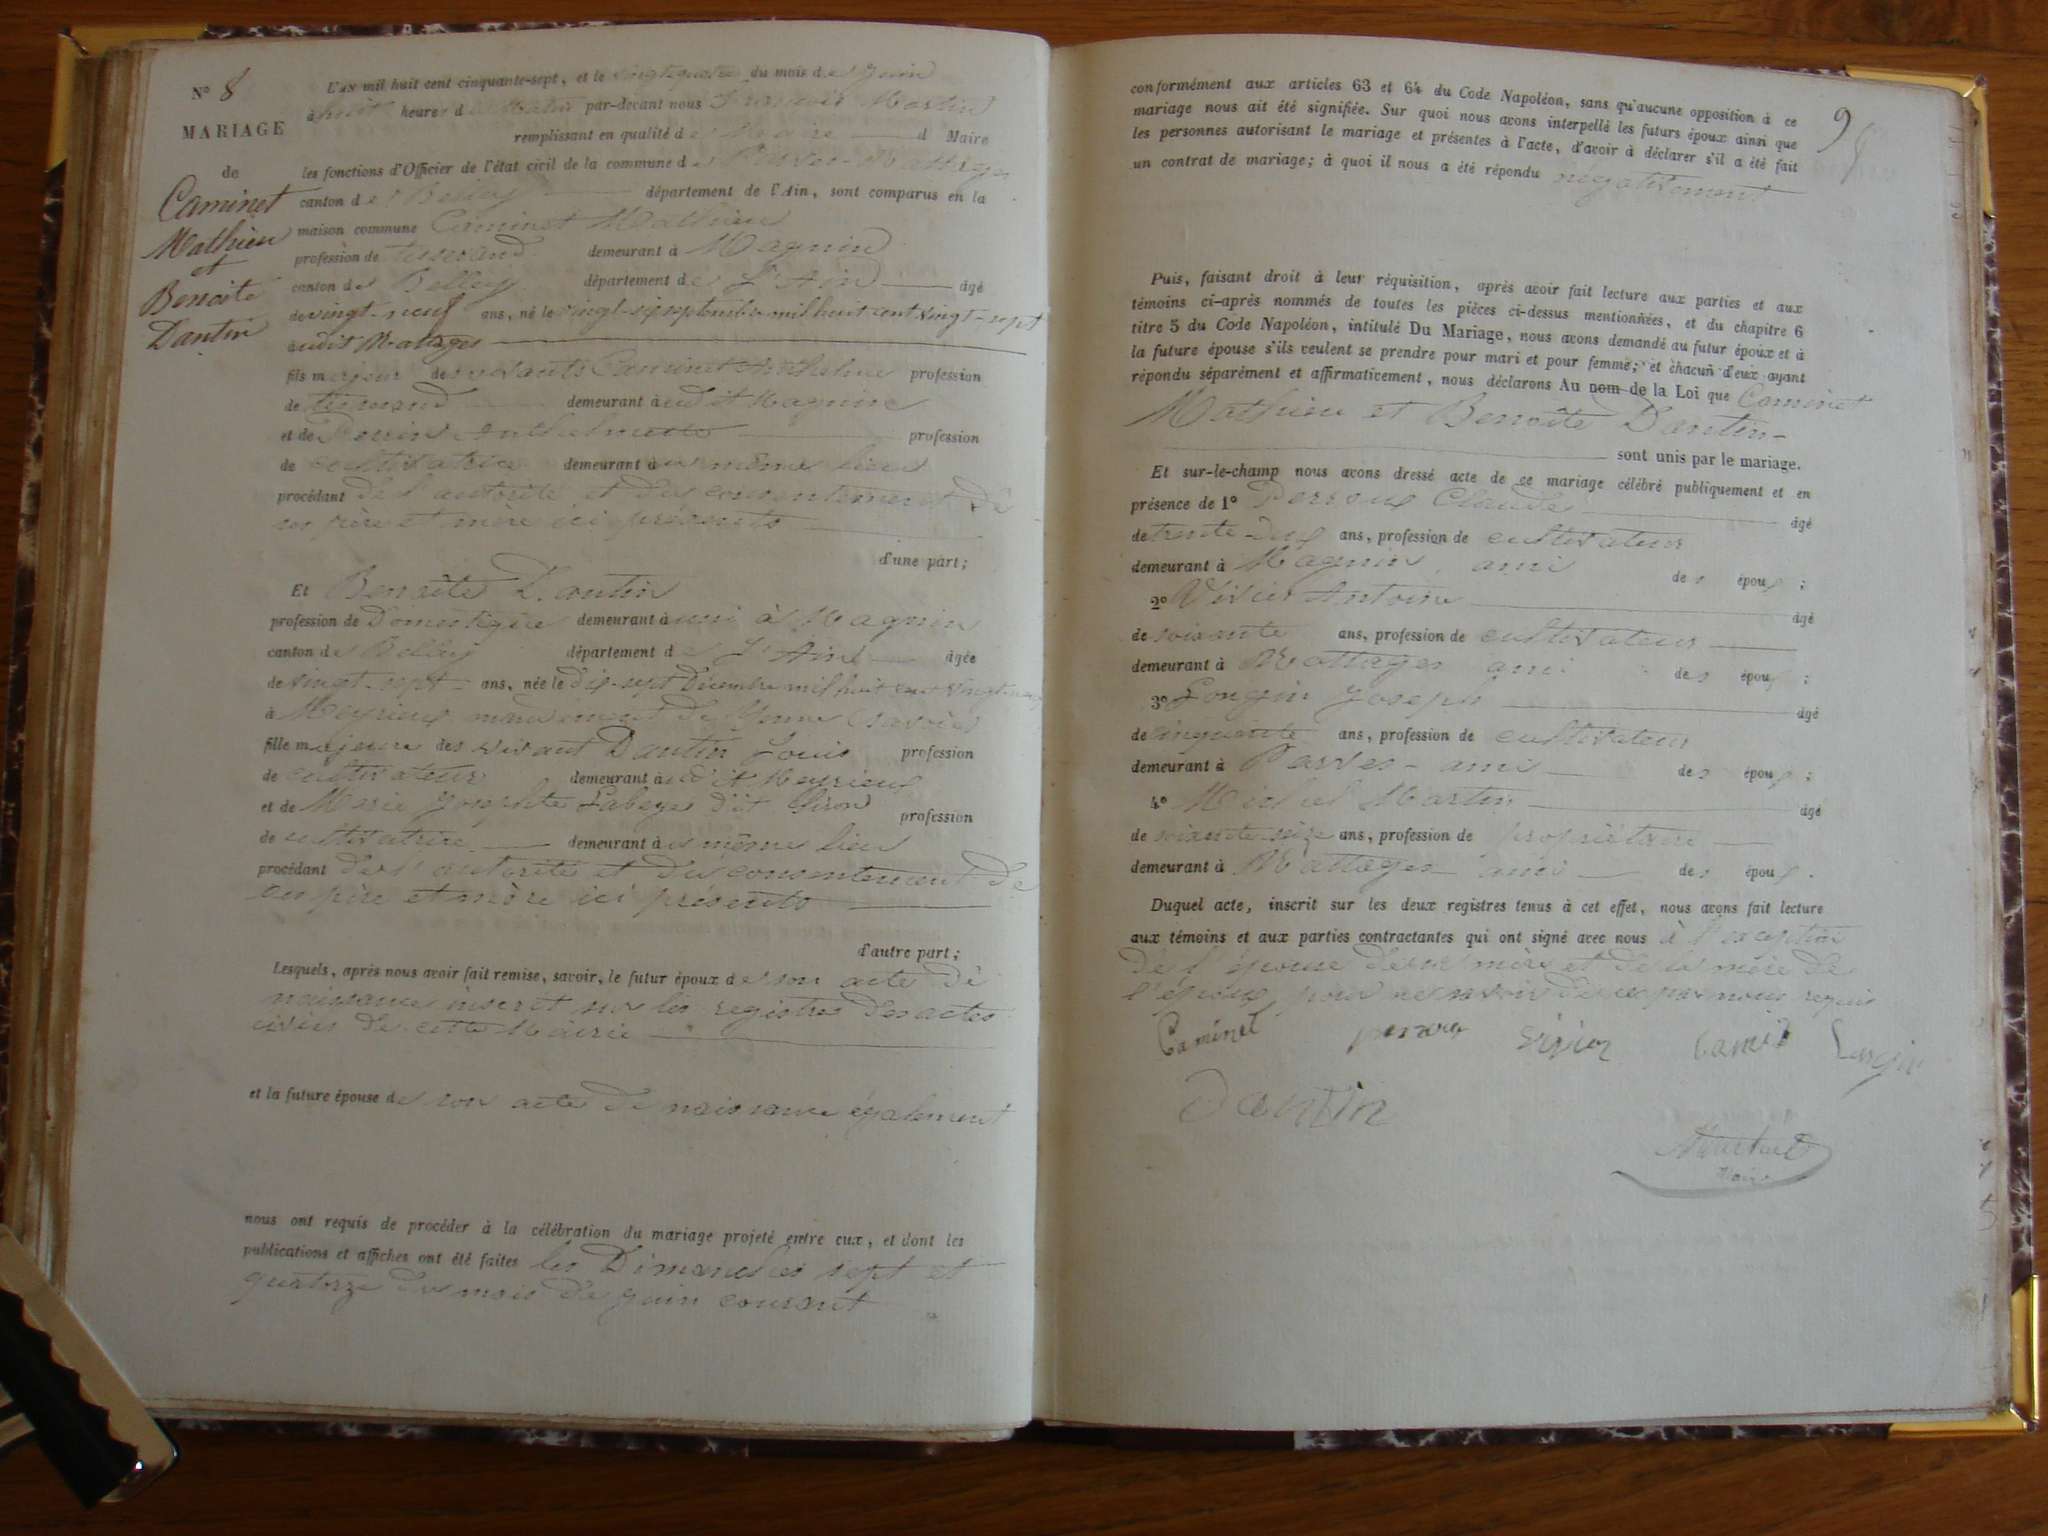 N° 8
MARIAGE
de
Caminet
Mathieu
et
Benoite
Dantin
L'AN mil huit cent cinquante-sept, et le vingt quatre du mois de Juin
à huit heures du Matin par-devant nous François Martin
remplissant en qualité de Maire d Maire
les fonctions d'Officier de l'état civil de la commune de Parves
canton de Belley département de l'Ain, sont comparus en la
maison commune Caminet Mathieu
profession de tisserand demeurant à Magnin
canton de Belley département de L'Ain âgé
de vingt-neuf ans, né le vingt-six septembre mil huit cent vingt-sept
audit Mattages
fils majeur des vivants Caminet Anthelme profession
de tisserand demeurant à udit Magnin
et de Anthelmette profession
de cultivatrice demeurant à u même lieu
procédant de l'autorité et du consentement de
ses père et mère ici présents
d'une part;
Et Benoîte Dantin
profession de Domestique demeurant à uni à Magnin
canton de Belley département de L'Ain âgée
de vingt-sept ans, née le dix-sept Décembre mil huit cent vingt-neuf
à Meyrieux mandement de Yenne (Savoie)
fille majeure des vivant Dantin Louis profession
de cultivateur demeurant à udit Meyrieux
et de Marie Josephte Labeye dit profession
de cultivatrice demeurant à u même lieu
procédant de l'autorité et du consentement de
ses père et mère ici présents
d'autre part;
Lesquels, après nous avoir fait remise, savoir, le futur époux de son acte de
naissance inscrit sur les registres des actes
civils de cette Mairie
et la future épouse de son acte de naissance également
nous ont requis de procéder à la célébration du mariage projeté entre eux, et dont les
publications et affiches ont été faites les Dimanches sept et
quatorze du mois de juin courant
9
conformément aux articles 63 et 64 du Code Napoléon, sans qu'aucune opposition à ce
mariage nous ait été signifiée. Sur quoi nous avons interpellé les futurs époux ainsi que
les personnes autorisant le mariage et présentes à l'acte, d'avoir à déclarer s'il a été fait
un contrat de mariage; à quoi il nous a été répondu négativement
Puis, faisant droit à leur réquisition, après avoir fait lecture aux parties et aux
témoins ci-après nommés de toutes les pièces ci-dessus mentionnées, et du chapitre 6
titre 5 du Code Napoléon, intitulé Du Mariage, nous avons demandé au futur époux et à
la future épouse s'ils veulent se prendre pour mari et pour femme; et chacun d'eux ayant
répondu séparément et affirmativement, nous déclarons Au nom de la Loi que Caminet
Mathieu et Benoîte Dantin
sont unis par le mariage.
Et sur-le-champ nous avons dressé acte de ce mariage célébré publiquement et en
présence de 1° Perroux Claude âgé
de trente-deux ans, profession de cultivateur
demeurant à Magnin, ami des époux;
2° Vivier Antoine âgé
de soixante ans, profession de cultivateur
demeurant à Mattages ami des époux;
3° Longin Joseph âgé
de cinquante ans, profession de cultivateur
demeurant à Parves - ami des époux;
4° Michel Martin âgé
de soixante-seize ans, profession de propriétaire
demeurant à Mattages ami des époux.
Duquel acte, inscrit sur les deux registres tenus à cet effet, nous avons fait lecture
aux témoins et aux parties contractantes qui ont signé avec nous à l'exception
de l'épouse de sa mère et de la mère de
l'époux pour ne savoir de ce par nous requis
Caminet perroux vivier Camine Longin
Dantin
Martin
Maire